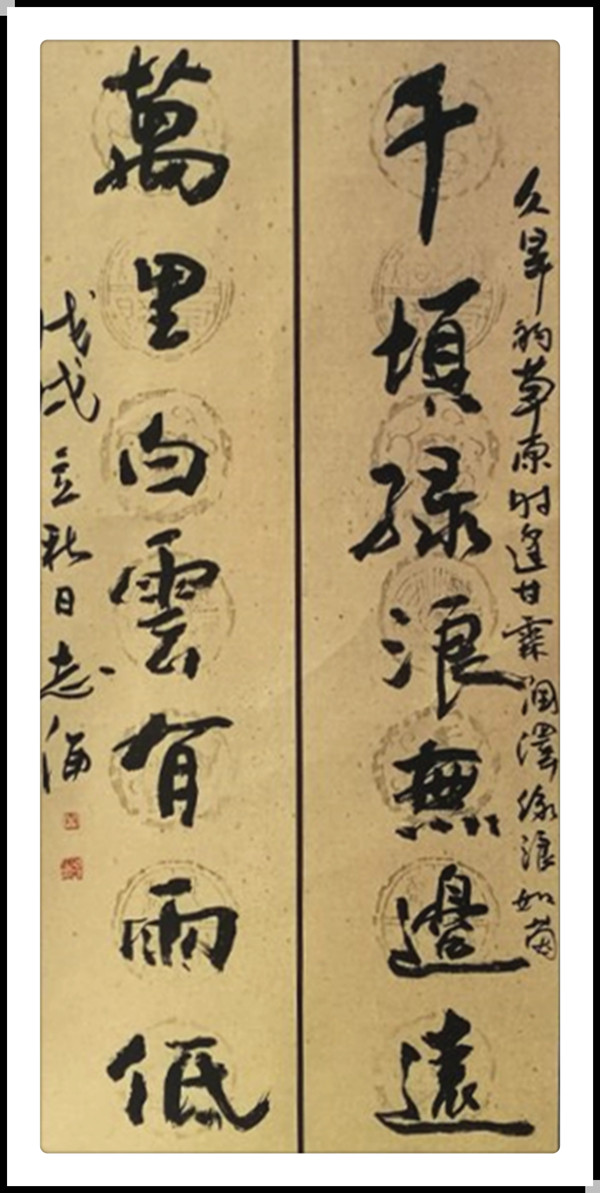 久旱的草原时逢甘霖润泽绿浪如茵
千頃绿浪無邊遠
萬里白雲有雨低
戊戌立秋日志海